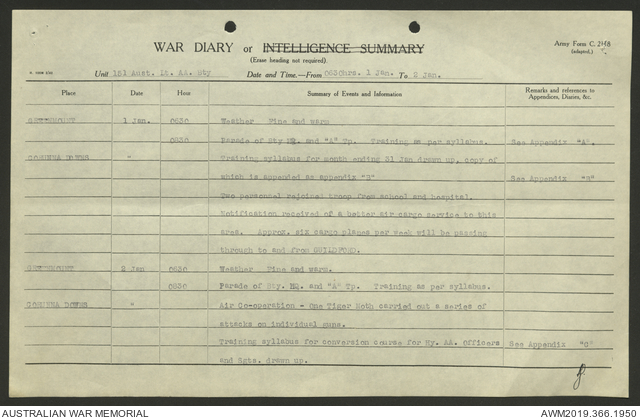 WAR DIARY or INTELLIGENCE SUMMARY
Army Form C. 2118
(adapted.)
(Erase heading not required).
Unit 151 Aust. Lt. AA. Bty Date and Time.—From 0630hrs. 1 Jan. To 2 Jan.
Place Date Hour Summary of Events and Information Remarks and references to Appendices, Diaries, &c.
1 Jan. 0630 Weather Fine and warm
0830 Parade of Bty HQ. and "A" Tp. Training as per syllabus. See Appendix "A".
DOWNS " Training syllabus for month ending 31 Jan drawn up, copy of
which is appended as Appendix "B" See Appendix "B"
Two personnel rejoined troop from school and hospital.
Notification received of a better air cargo service to this
area. Approx. six cargo planes per week will be passing
through to and from GUILDFORD.
2 Jan 0630 Weather Fine and warm.
0830 Parade of Bty. HQ. and "A" Tp. Training as per syllabus.
DOWNS " Air Co-operation - One Tiger Moth carried out a series of
attacks on individual guns.
Training syllabus for conversion course for Hy. AA. Officers See Appendix "C"
and Sgts. drawn up.
AUSTRALIAN WAR MEMORIAL AWM2019.366.1950